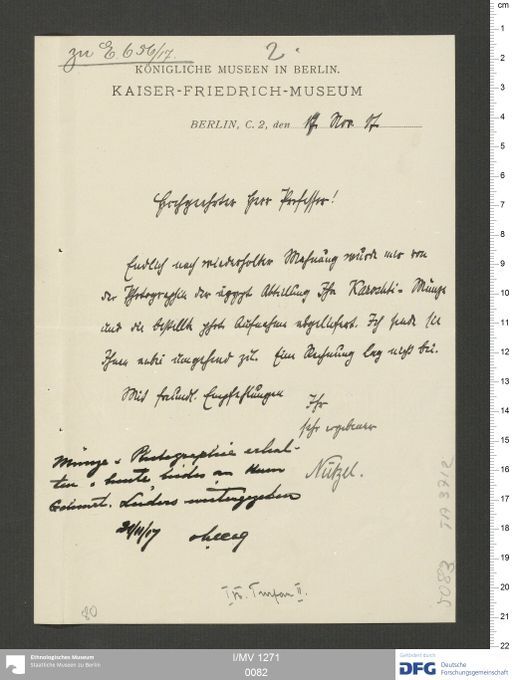 zu E 636/17.
2.
KÖNIGLICHE MUSEEN IN BERLIN.
KAISER-FRIEDRICH-MUSEUM
BERLIN, C. 2, den 17. Nov. 17.
Hochgeehrter Herr Professor!
Endlich nach wiederholter Mahnung wurde mir von
der Photographie der ägypt. Abteilung Ihre Karoshti-Münze
und die bestellte phot. Aufnahme abgeliefert. Ich sende sie
Ihnen anbei umgehend zu. Eine Rechnung lag nicht bei.
Mit freundl. Empfehlungen
Ihr
sehr ergebener
Nützel.
Münze u. Photographie erhal-
ten u. heute beides an Herrn
Geheimrt. Lüders weitergegeben
20/11/17
80
I.B. Turfan II.
5083 IA 3912
cm
1
2
3
4
5
6
7
8
9
10
11
12
13
14
15
16
17
18
19
20
21
22
Ethnologisches Museum
Staatliche Museen zu Berlin
I/MV 1271
0082
Gefördert durch
DFG Deutsche
Forschungsgemeinschaft